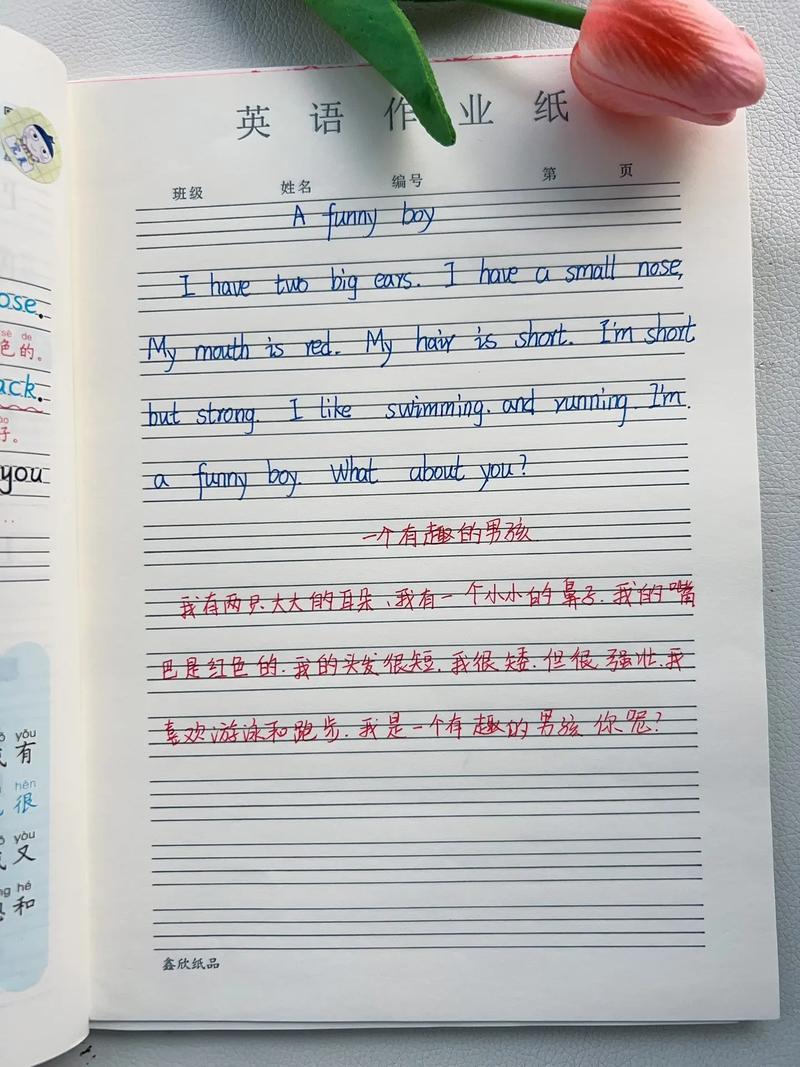 ose.
sè de
色的。
ack.
子。
you
英语作业纸
班级 姓名 编号 第 页
A funny boy
I have two big ears. I have a small nose,
My mouth is red. My hair is short. I'm short
but strong. I like swimming. and running. I'm.
a funny boy. What about you?
一个有趣的男孩
我有两只大大的耳朵、我有一个小小的鼻子.我的嘴
巴是红色的.我的头发很短.我很矮.但很强壮.我
喜欢游泳和跑步.我是一个有趣的男孩 你呢?
yǒu
有
hěn
很
yòu
又
hé
和
鑫欣纸品